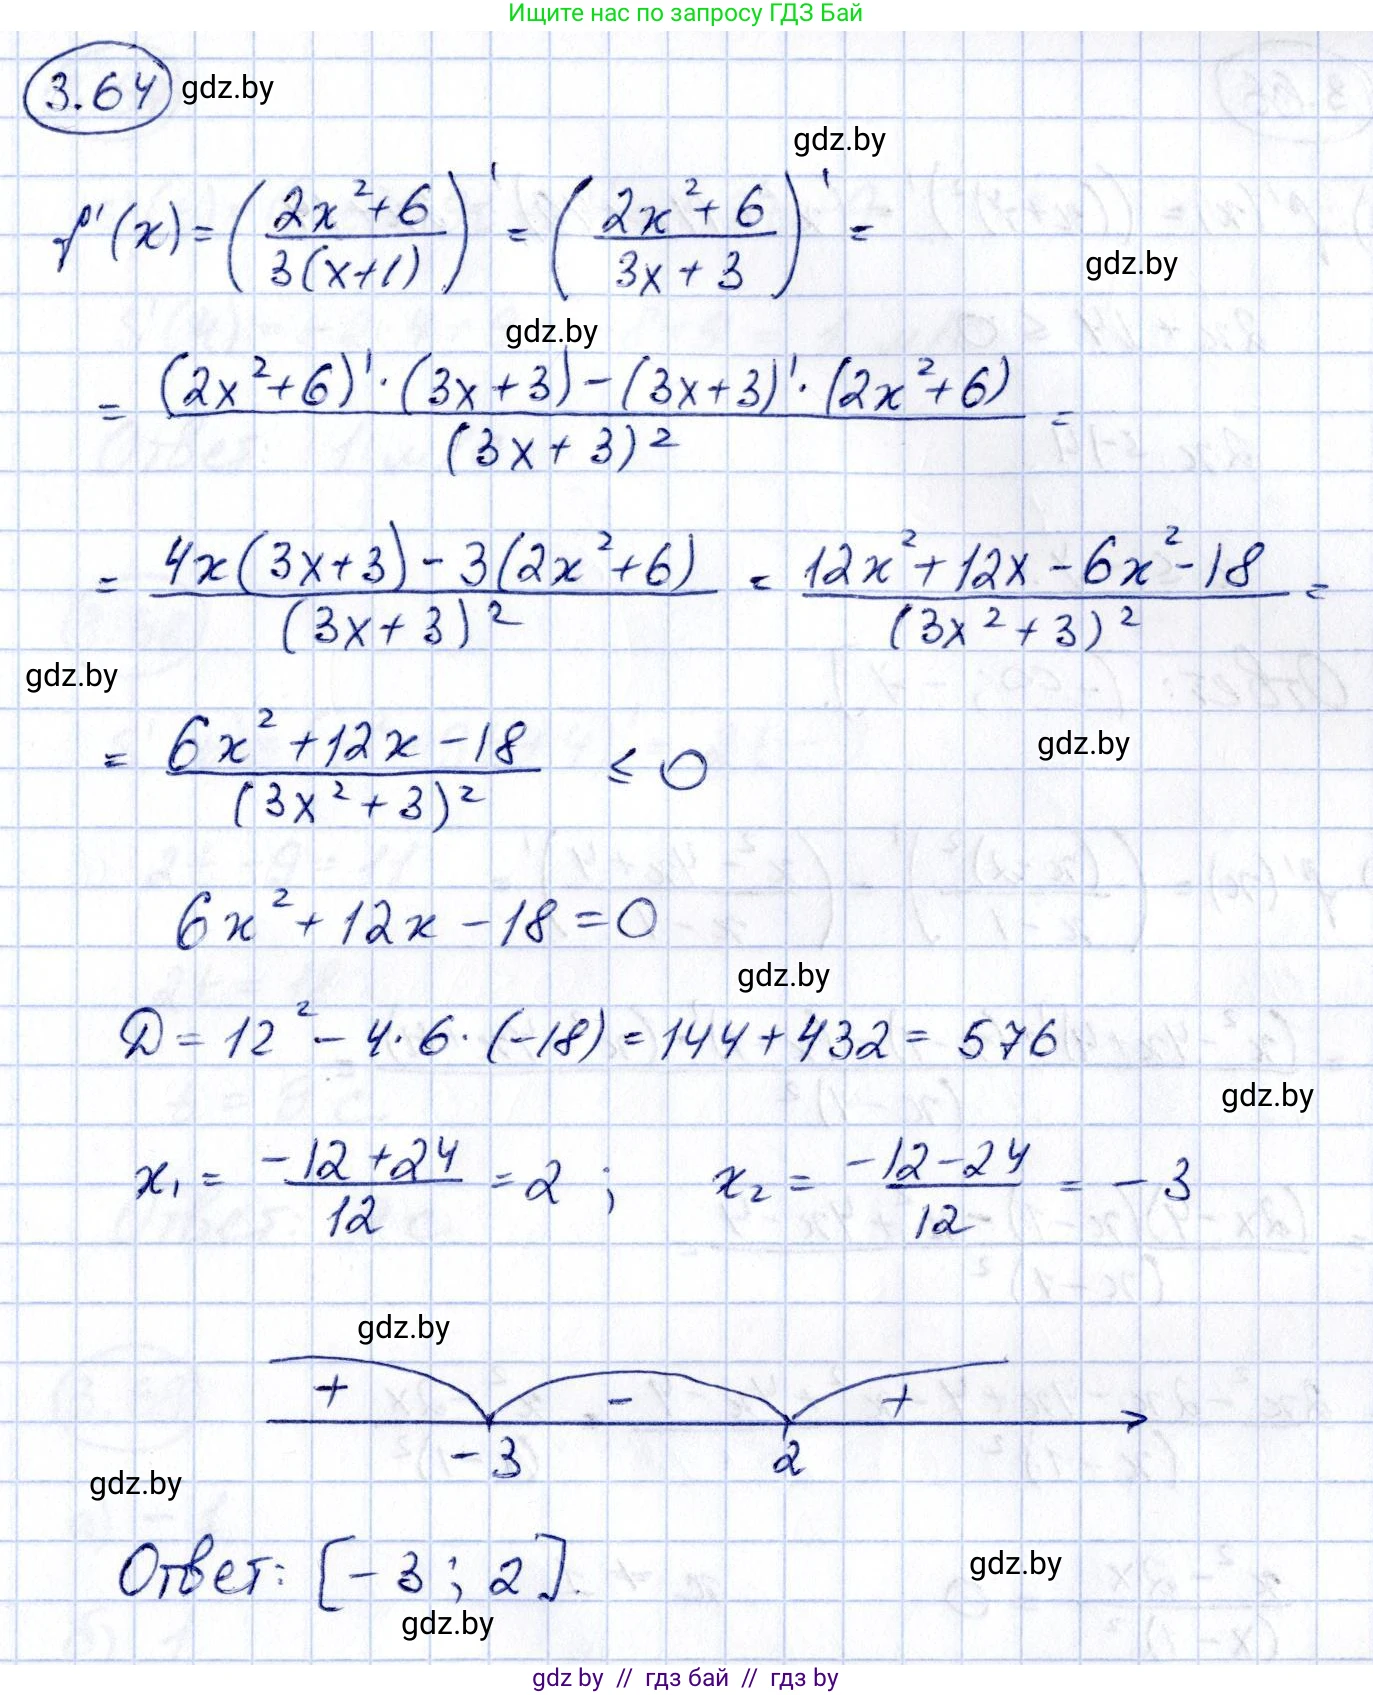 Ищите нас по запросу ГДЗ Бай
3.64 gdz.by
gdz.by
f'(x) = ((2x²+6)/(3(x+1)))' = ((2x²+6)/(3x+3))' =
gdz.by
gdz.by
= ((2x²+6)'·(3x+3)-(3x+3)'·(2x²+6))/((3x+3)²) =
= (4x(3x+3)-3(2x²+6))/((3x+3)²) = (12x²+12x-6x²-18)/((3x²+3)²) =
gdz.by
= (6x²+12x-18)/((3x²+3)²) ≤ 0
gdz.by
6x²+12x-18=0
gdz.by
D = 12²-4·6·(-18) = 144+432 = 576
gdz.by
x₁ = (-12+24)/12 = 2 ; x₂ = (-12-24)/12 = -3
gdz.by
+ - +
-3 2
gdz.by
Ответ: [-3; 2].
gdz.by
gdz.by
gdz by // гдз бай // гдз by